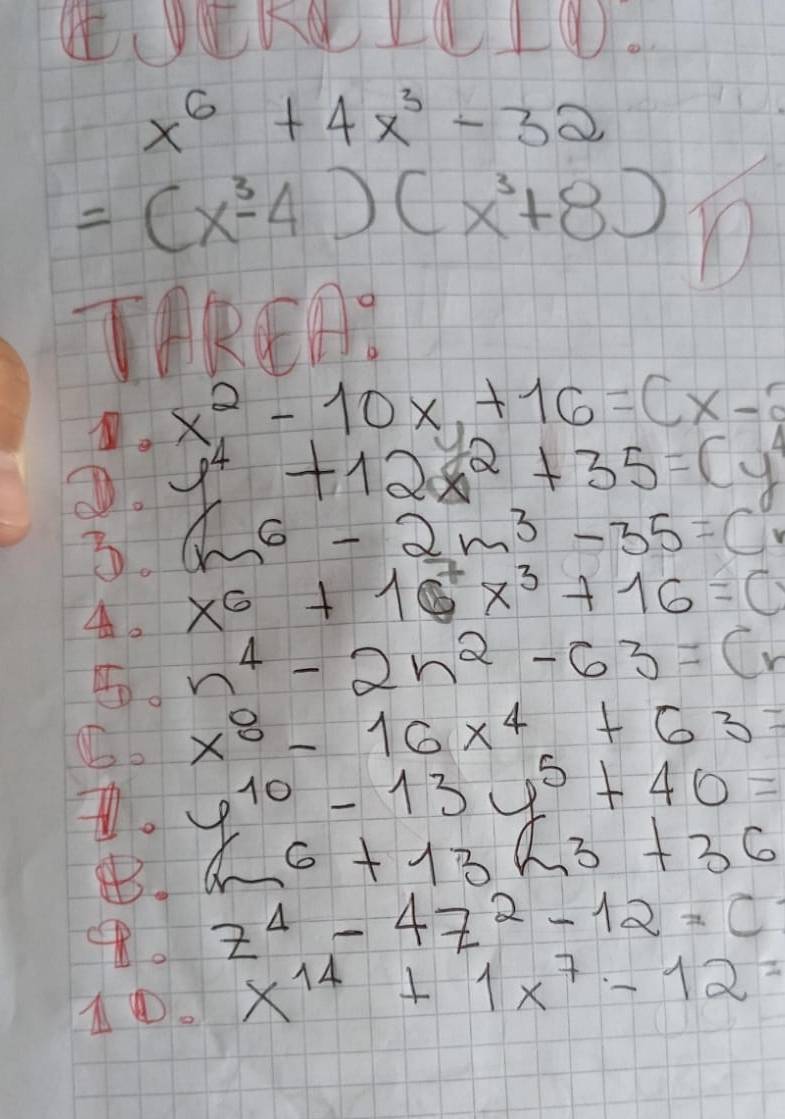 EJERCICIO:
x⁶ + 4x³ - 32
= (x³-4)(x³+8)
TAREA:
1. x² - 10x + 16 = (x-2
2. y⁴ + 12y² + 35 = (y
3. m⁶ - 2m³ - 35 = (
4. x⁶ + 17x³ + 16 = (
5. n⁴ - 2n² - 63 = (n
6. x⁸ - 16x⁴ + 63 =
7. y¹⁰ - 13y⁵ + 40 =
8. m⁶ + 13m³ + 36
9. z⁴ - 4z² - 12 = (
10. x¹⁴ + 1x⁷ - 12 =